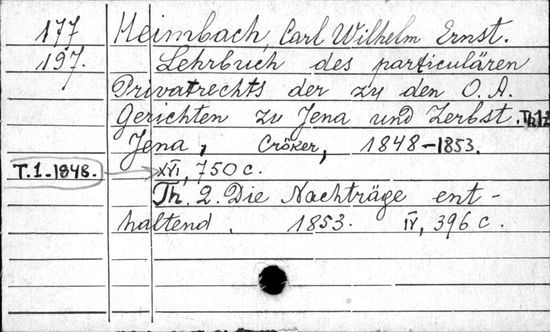 177 Heimbach, Carl Wilhelm Ernst.
197. Lehrbuch des particulären
Privatrechts der zu den O. A.
Gerichten zu Jena und Zerbst. Th.1-2
Jena, Cröker, 1848-1853.
T.1-1848. XVI, 750 c.
Th. 2. Die Nachträge ent-
haltend. 1853. IV, 396 c.